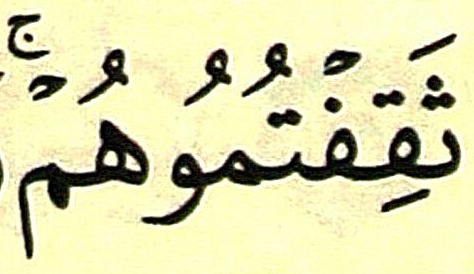 ثَقِفْتُمُوهُمْ ۚ